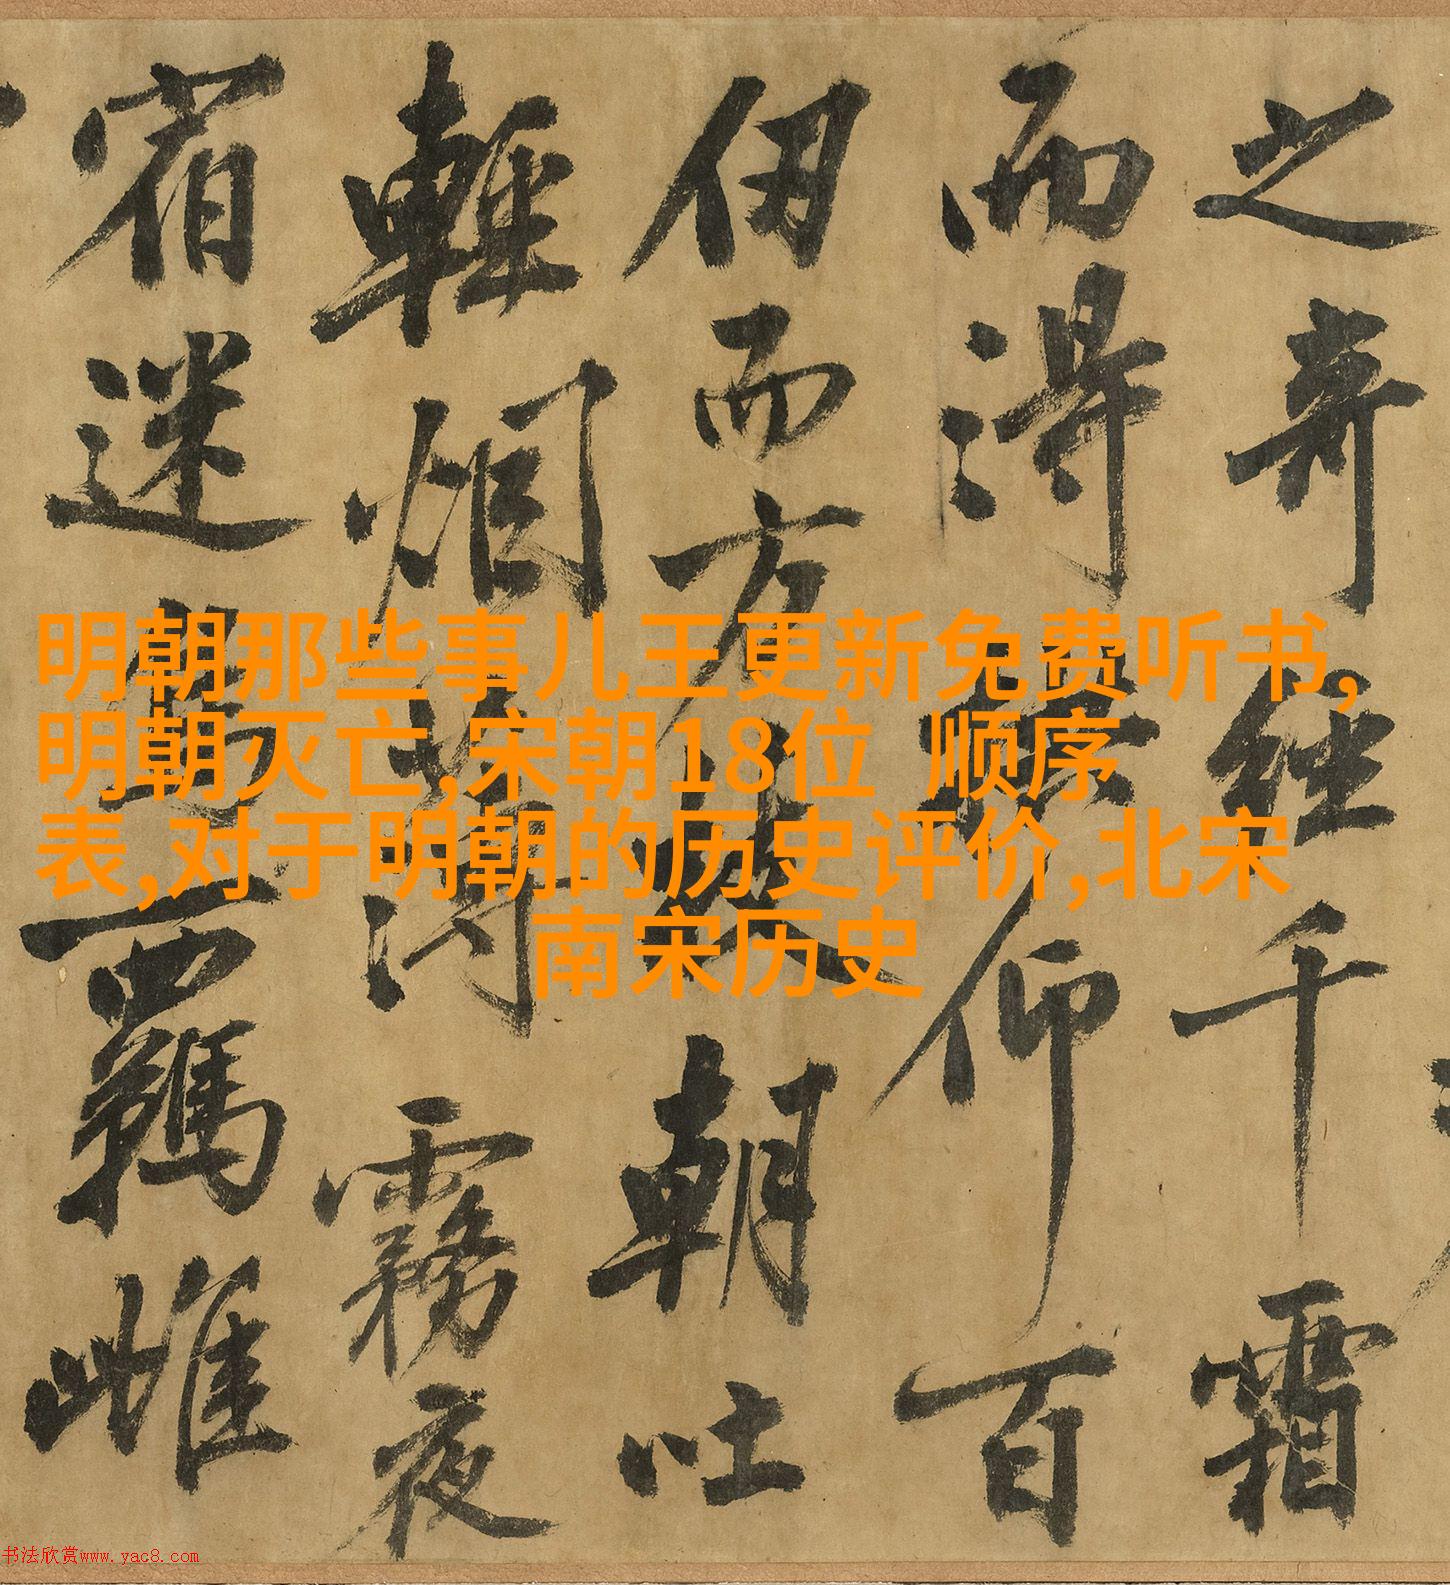 之奇經千霜
而得仰百
仞而方朝吐
輕烟薄霧夜
宿迷鳥羈雌
明朝那些事儿王更新免费听书,
明朝灭亡,宋朝18位 顺序
表,对于明朝的历史评价,北宋
南宋历史
书法欣赏www.yac8.com